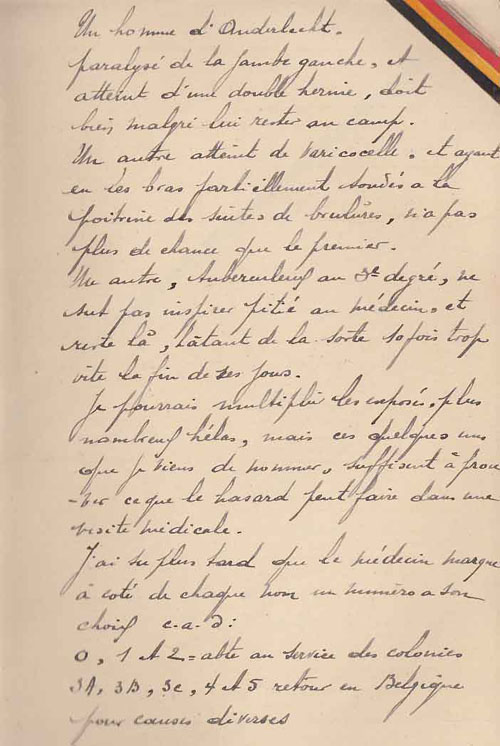 Un homme d'Anderlecht.
paralysé de la jambe gauche, et
atteint d'une double hernie, doit
bien malgré lui rester au camp.
Un autre atteint de varicocelle. et ayant
eu les bras partiellement soudés a la
poitrine des suites de brulûres, n'a pas
plus de chance que le premier.
Un autre, tuberculeux au 3e degré, ne
sut pas inspirer pitié au médecin, et
reste là, hâtant de la sorte 10 fois trop
vite la fin de ses jours.
Je pourrais multiplier les exposés, plus
nombreux hélas, mais ces quelques uns
que je viens de nommer, suffisent à prou
-ver ce que le hasard peut faire dans une
visite médicale.
J'ai su plus tard que le médecin marque
à coté de chaque nom un numéro a son
choix c-a-d:
0, 1 et 2 = abte au service des colonies
3A, 3B, 3c, 4 et 5 retour en Belgique
pour causes diverses